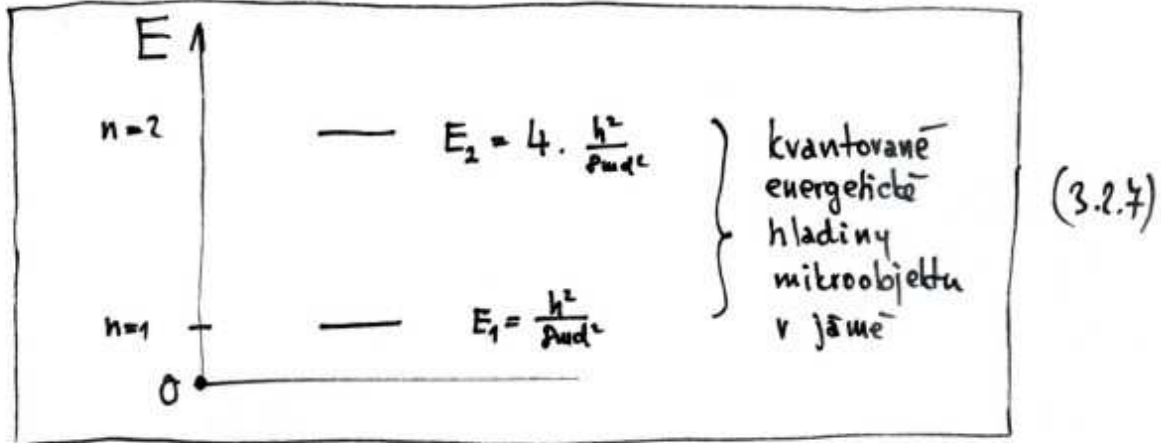 E
n=2 E₂ = 4 . h²/8md²
n=1 E₁ = h²/8md²
0
kvantované
energetické
hladiny
mikroobjektu
v jámě
(3.2.7)